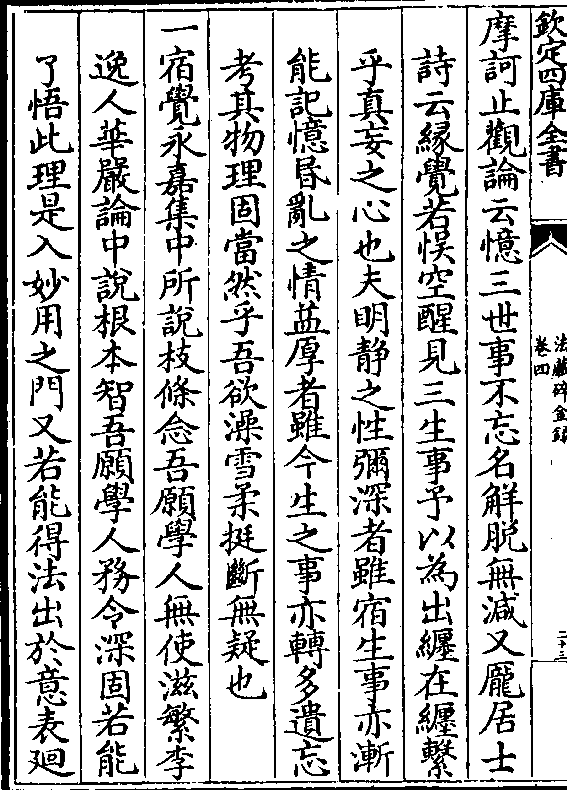 欽定四庫全書
法藏碎金録
卷四
摩訶止觀論云憶三世事不忘名解脱無減又龐居士
詩云縁覺若悮空醒見三生事予以為出纒在纒繫
乎真妄之心也夫明静之性彌深者雖宿生事亦漸
能記憶昬亂之情益厚者雖今生之事亦轉多遺忘
考其物理固當然乎吾欲澡雪柔挺斷無疑也
一宿覺永嘉集中所説枝條念吾願學人無使滋繁李
逸人華嚴論中説根本智吾願學人務令深固若能
了悟此理是入妙用之門又若能得法出於意表廻